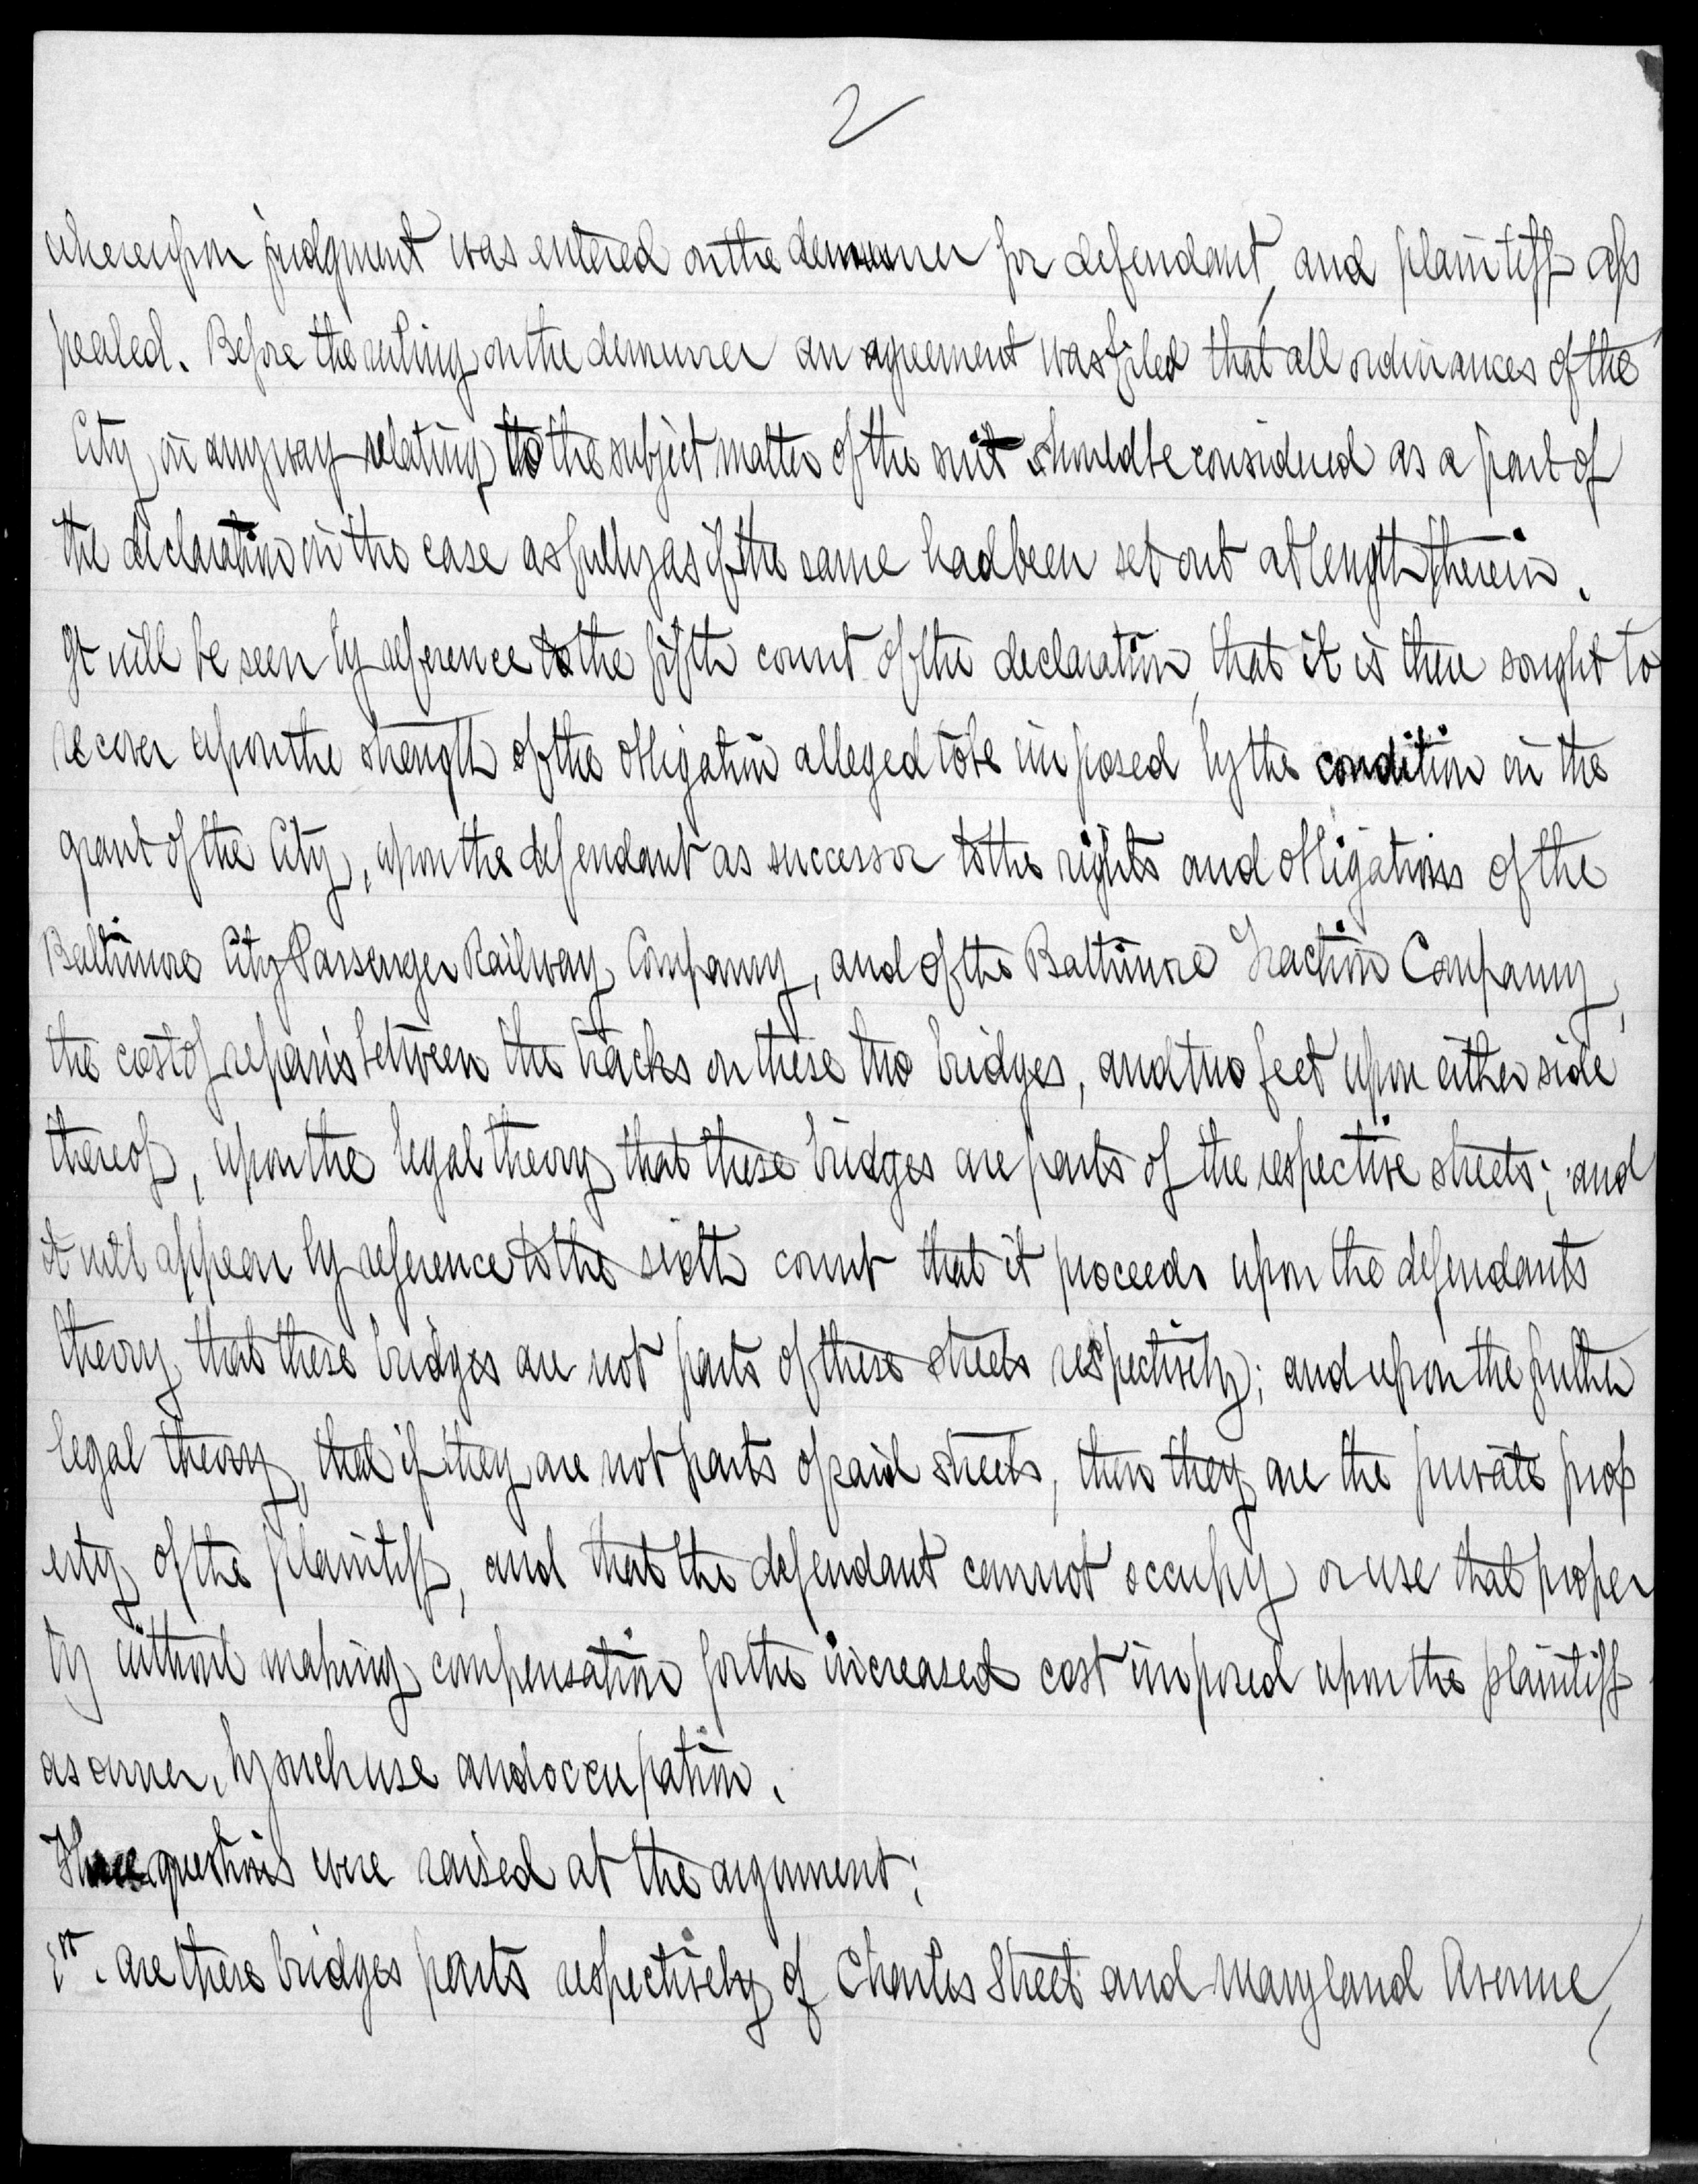 2
whereupon judgment was entered on the demurrer for defendant, and plaintiff ap
pealed. Before the ruling on the demurrer an agreement was filed that all ordinances of the
City, in anyway relating to the subject matter of the suit should be considered as a part of
the declaration in the case as fully as if the same had been set out at length therein.
It will be seen by reference to the fifth count of the declaration, that it is there sought to
recover upon the strength of the obligation alleged to be imposed by the condition in the
grant of the City, upon the defendant as successor to the rights and obligations of the
Baltimore City Passenger Railway Company, and of the Baltimore Traction Company,
the cost of repairs between the tracks on these two bridges, and two feet upon either side
thereof, upon the legal theory that these bridges are parts of the respective streets; and
it will appear by reference to the sixth count that it proceeds upon the defendants
theory that these bridges are not parts of these streets respectively; and upon the further
legal theory, that if they are not parts of said streets, then they are the private prop
erty of the plaintiff, and that the defendant cannot occupy or use that proper
ty without making compensation for the increased cost imposed upon the plaintiff
as owner, by such use and occupation.
Three questions were raised at the argument:
1st. are these bridges parts respectively of Charles Street and Maryland Avenue,